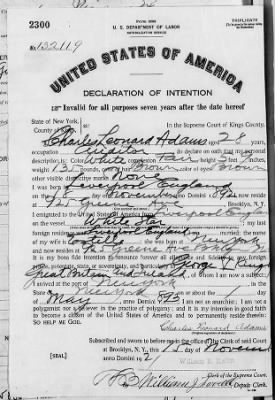 2300
Form 2202
U. S. DEPARTMENT OF LABOR
NATURALIZATION SERVICE
TRIPLICATE
No. 132119
UNITED STATES OF AMERICA
DECLARATION OF INTENTION
Invalid for all purposes seven years after the date hereof
State of New York,
County of Kings
In the Supreme Court of Kings County.
I, Charles Leonard Adams, aged 28 years,
occupation, do declare on oath that my personal
description is: Color White, complexion Fair, height 5 feet inches,
weight 135 pounds, color of hair Brown, color of eyes Brown
other visible distinctive marks None
I was born in Liverpool England
on the day of, anno Domini 1; I now reside
at 125 Green Ave, Brooklyn, N. Y.
I emigrated to the United States of America from Liverpool
on the vessel; my last
foreign residence was Liverpool England; I am married; the name
of my wife is; she was born at New York
and now resides at 125 Green Av
It is my bona fide intention to renounce forever all allegiance and fidelity to any foreign
prince, potentate, state, or sovereignty, and particularly to George V, King of
Great Britain and Ireland, of whom I am now a subject;
I arrived at the port of New York, in the
State of New York, on or about the day
of May, anno Domini 1915; I am not an anarchist; I am not a
polygamist nor a believer in the practice of polygamy; and it is my intention in good faith
to become a citizen of the United States of America and to permanently reside therein:
SO HELP ME GOD.
Charles Leonard Adams
Subscribed and sworn to before me in the office of the Clerk of said Court
at Brooklyn, N. Y., this 15 day of November
anno Domini 1921
[SEAL]
Clerk of the Supreme Court.
By William J., Deputy Clerk.